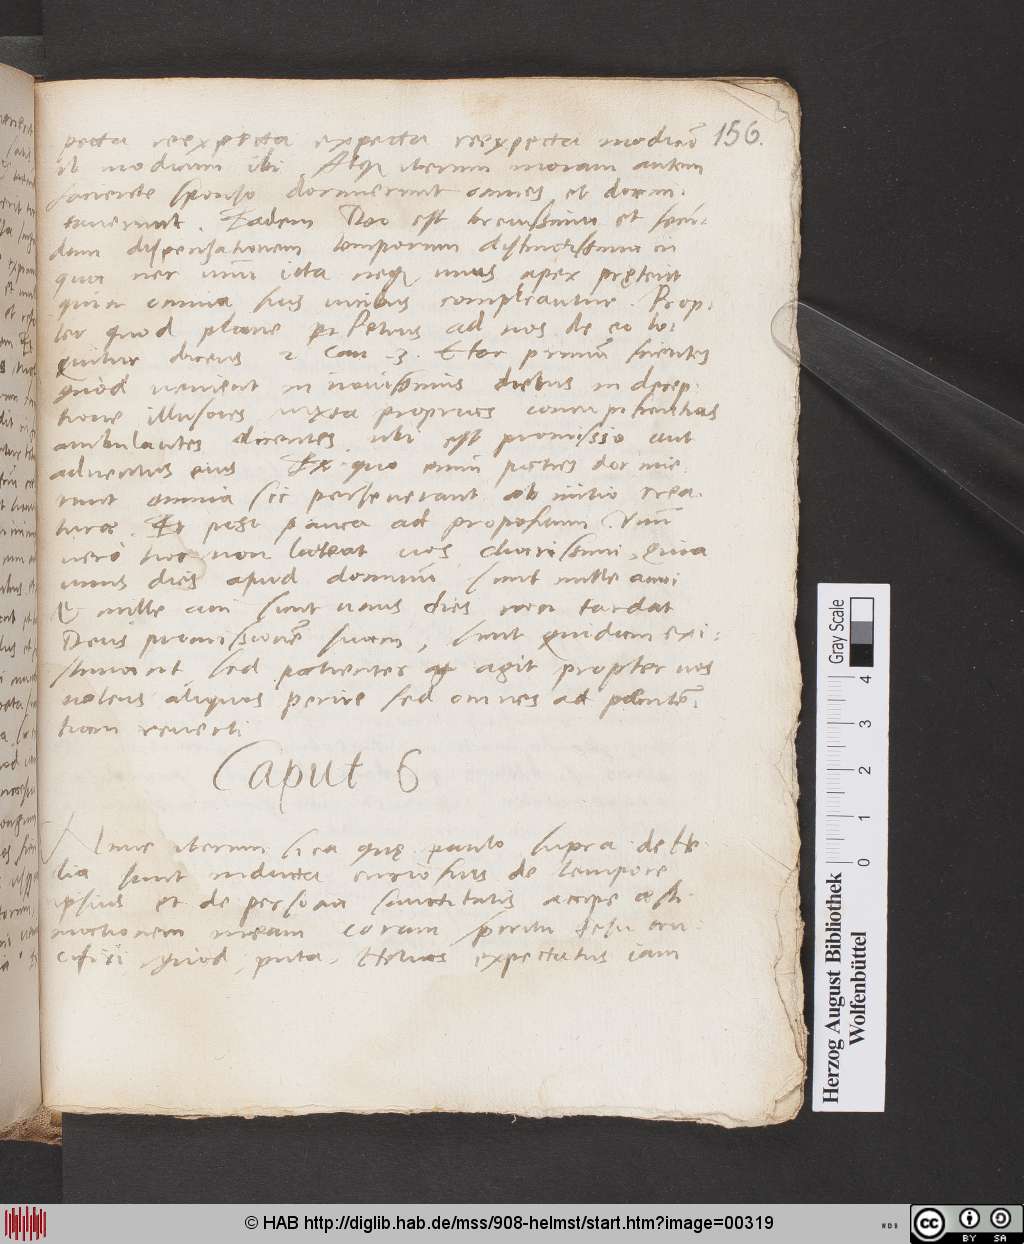 156.
pecta reexpecta expecta reexpecta modicū
ibi modicum ibi Atq; iterum moram autem
faciente sponso dormierunt omnes et dormi-
taverunt. Eadem Nox est brevissima et secū-
dum dispensationem temporum distinctissima in
qua nec unū iota neq; unus apex pręteriit
quin omnia suis vicibus compleantur. Prop-
ter quod plane Petrus ad nos de eo lo-
quitur dicens 2 Can 3. Hoc primū scientes
Quod venient in novissimis diebus in decep-
tione illusores iuxta proprias concupiscentias
ambulantes dicentes ubi est promissio aut
adventus eius Ex quo enim patres dormie-
runt omnia sic perseverant ab initio crea-
turæ. Et post pauca ad propositum. Unū
vero hoc non lateat vos charissimi, Quia
unus dies apud dominū sunt mille anni
& mille anni sunt unus dies non tardat
Deus promissionē suam, sicut quidam exi-
stimant, sed patienter agit propter vos
nolens aliquos perire sed omnes ad penitē-
tiam reverti
Caput 6
Nunc iterum sica quę paulo supra de He-
lia sunt inducta curiosius de tempore
ipsius et de persona sanctitatis accipe æsti-
mationem meam coram spiritu Jesu cru-
cifixi Quod, puta, Helias expectatus iam
Gray Scale
0 1 2 3 4
Herzog August Bibliothek
Wolfenbüttel
© HAB http://diglib.hab.de/mss/908-helmst/start.htm?image=00319
WDB
cc BY SA